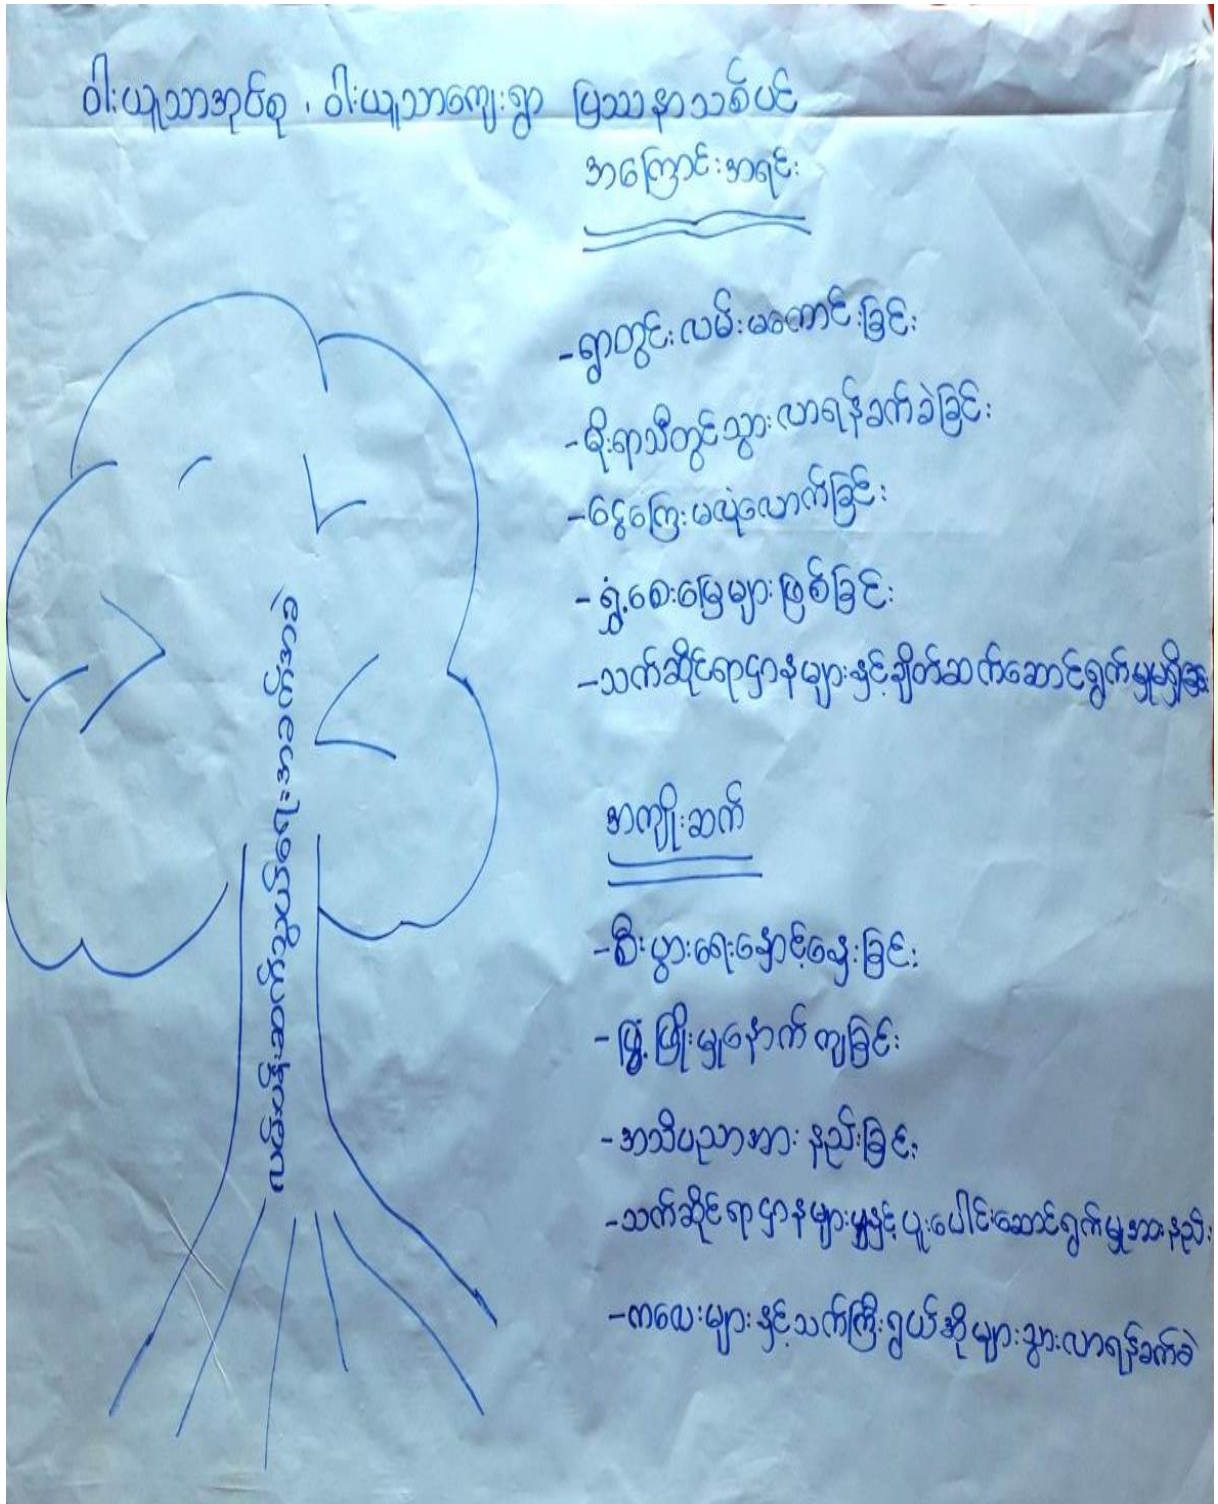 ဝါးယူသာအုပ်စု ၊ ဝါးယူသာကျေးရွာ ပြဿနာသစ်ပင်
အကြောင်းအရင်း
-ရွာတွင်းလမ်းမကောင်းခြင်း
-မိုးရာသီတွင်သွားလာရန်ခက်ခဲခြင်း
-ငွေကြေးမလုံလောက်ခြင်း
-ရွှံ့စေးမြေများဖြစ်ခြင်း
-သက်ဆိုင်ရာဌာနများနှင့်ချိတ်ဆက်ဆောင်ရွက်မှုမရှိခြင်း
အကျိုးဆက်
-စီးပွားရေးနှောင့်နှေးခြင်း
-ဖွံ့ဖြိုးမှုနောက်ကျခြင်း
-အသိပညာအားနည်းခြင်း
-သက်ဆိုင်ရာဌာနများမှနှင့်ပူးပေါင်းဆောင်ရွက်မှုအားနည်း
-ကလေးများနှင့်သက်ကြီးရွယ်အိုများသွားလာရန်ခက်ခဲ